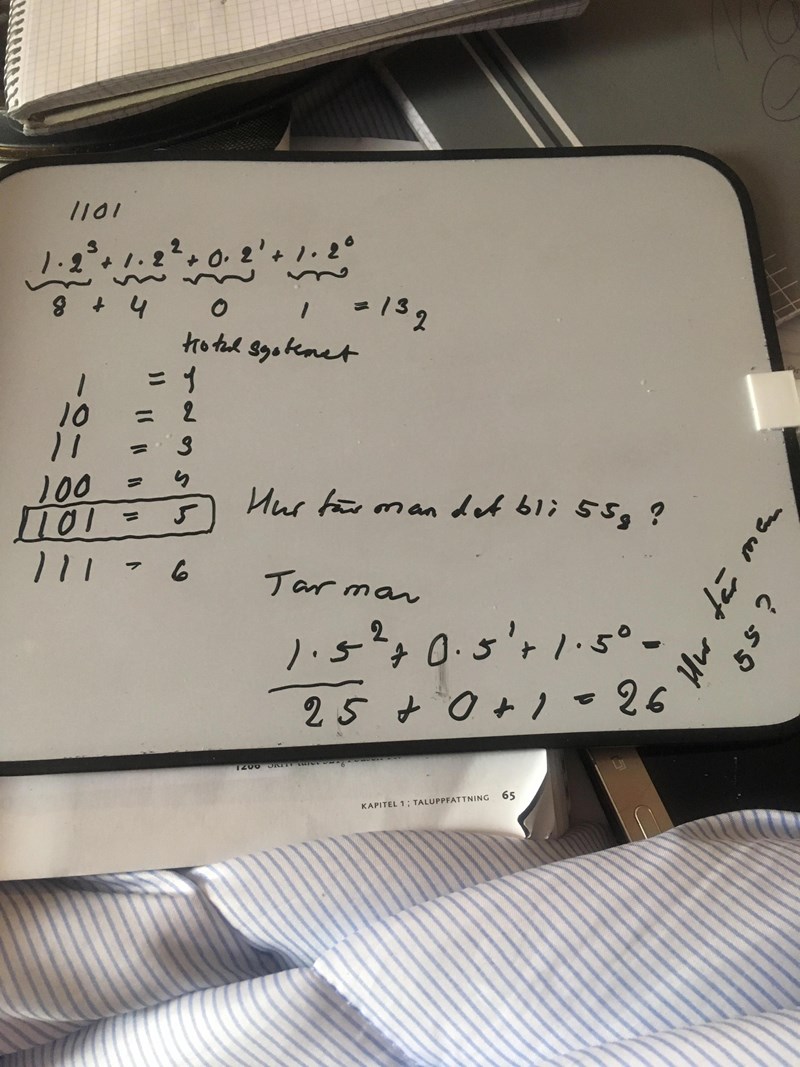 1101
1·2³ + 1·2² + 0·2¹ + 1·2⁰
8 + 4 0 1 = 13₂
1 = 1
10 = 2
11 = 3
100 = 4
101 = 5
Hur får man det bli 55₈?
111 = 6
Tar man
1·5² + 0·5¹ + 1·5⁰ =
25 + 0 + 1 = 26
Hur får man
55?
KAPITEL 1; TALUPPFATTNING 65